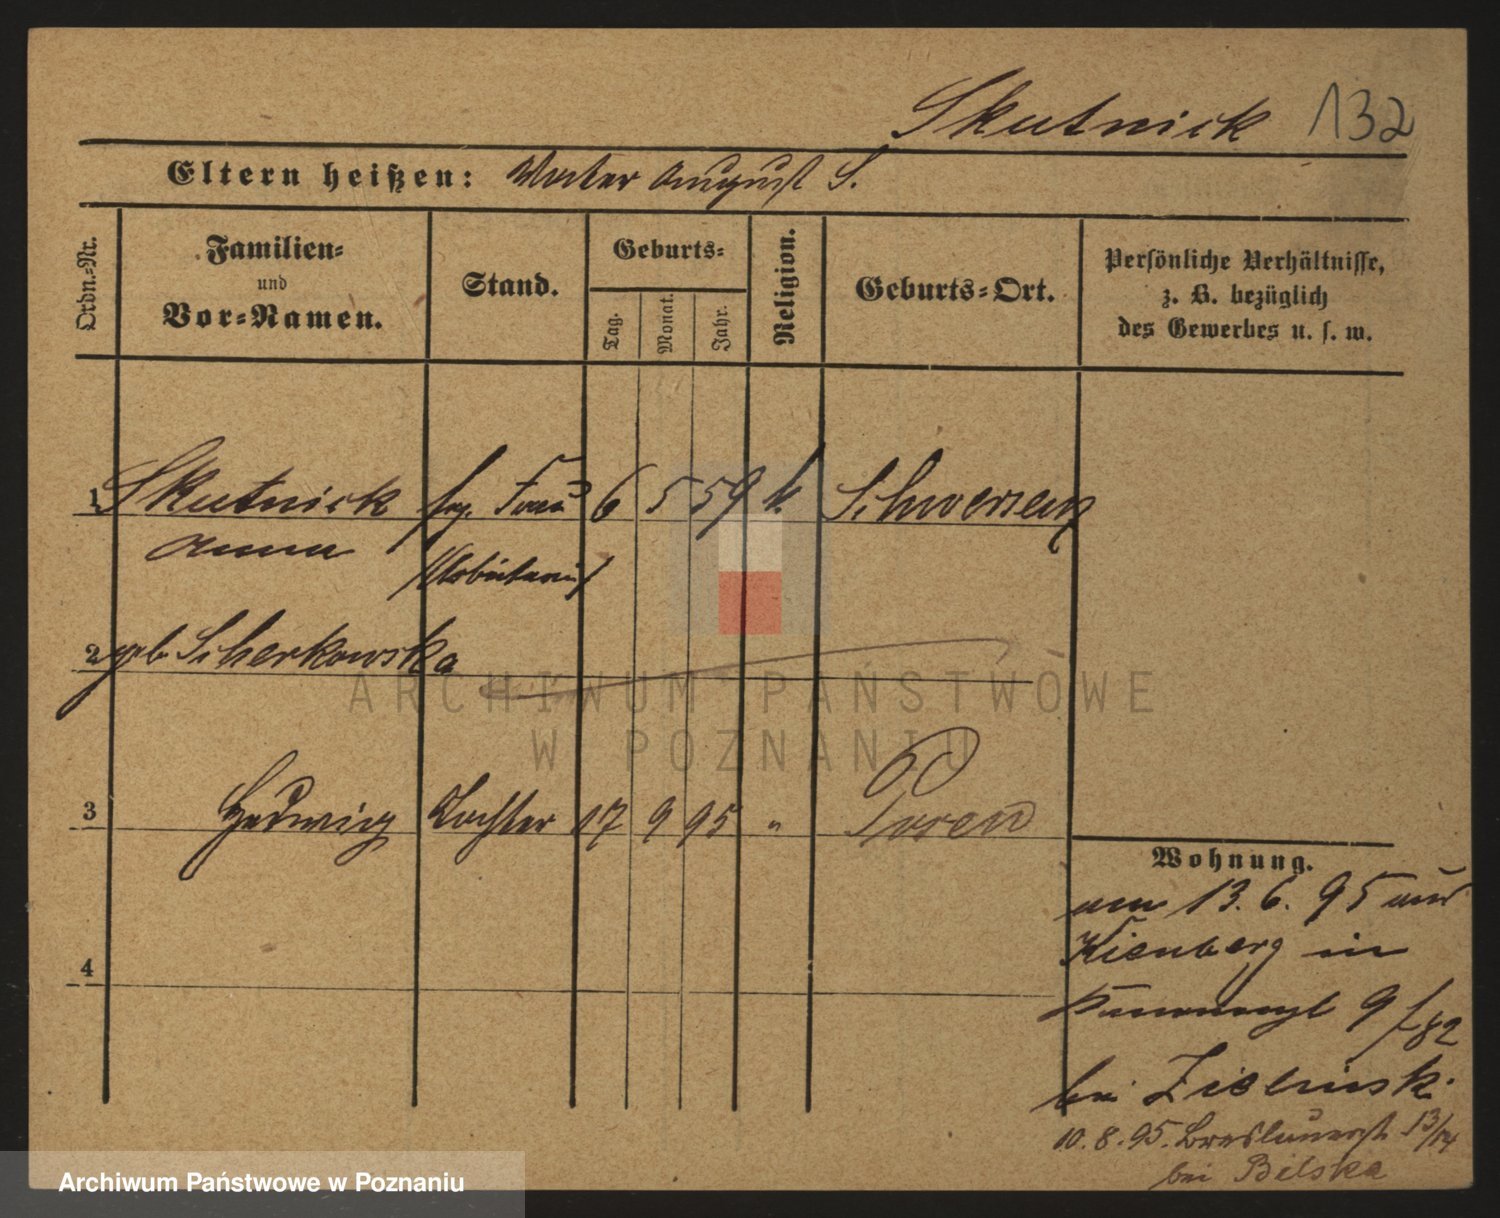 Skutnick 132
Eltern heißen: Vater August S.
Ordn.=Nr.
Familien=
und
Vor=Namen.
Stand.
Geburts=
Tag.
Monat.
Jahr.
Religion.
Geburts=Ort.
Persönliche Verhältnisse,
z. B. bezüglich
des Gewerbes u. s. w.
1 Skutnick Frau 6 5 59 k Schwersenz
Anna Arbeiterin
2 geb Scherkowska
3 Hedwig Tochter 17 9 95 " Posen
4
Wohnung.
am 13. 6. 95 aus
in
9/82
bei Zielinski
10. 8. 95. Breslauerst 13/14
bei Bilska
ARCHIWUM PAŃSTWOWE
W POZNANIU
Archiwum Państwowe w Poznaniu